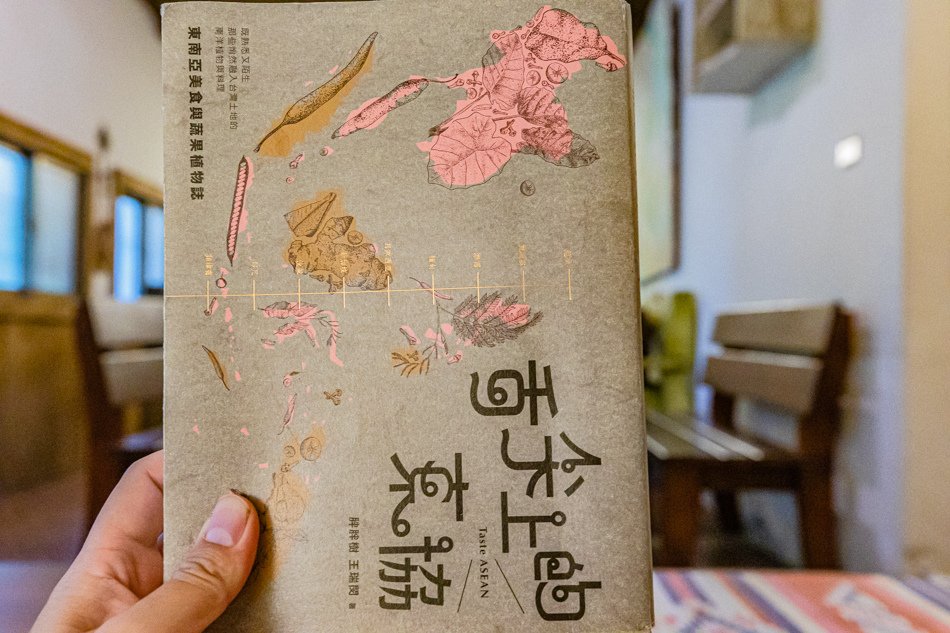 舌尖上的
東協
Taste ASEAN
胖胖樹 王瑞閔 著
既熟悉又陌生
那些悄然融入台灣土地的
南洋植物與料理
東南亞美食與蔬果植物誌